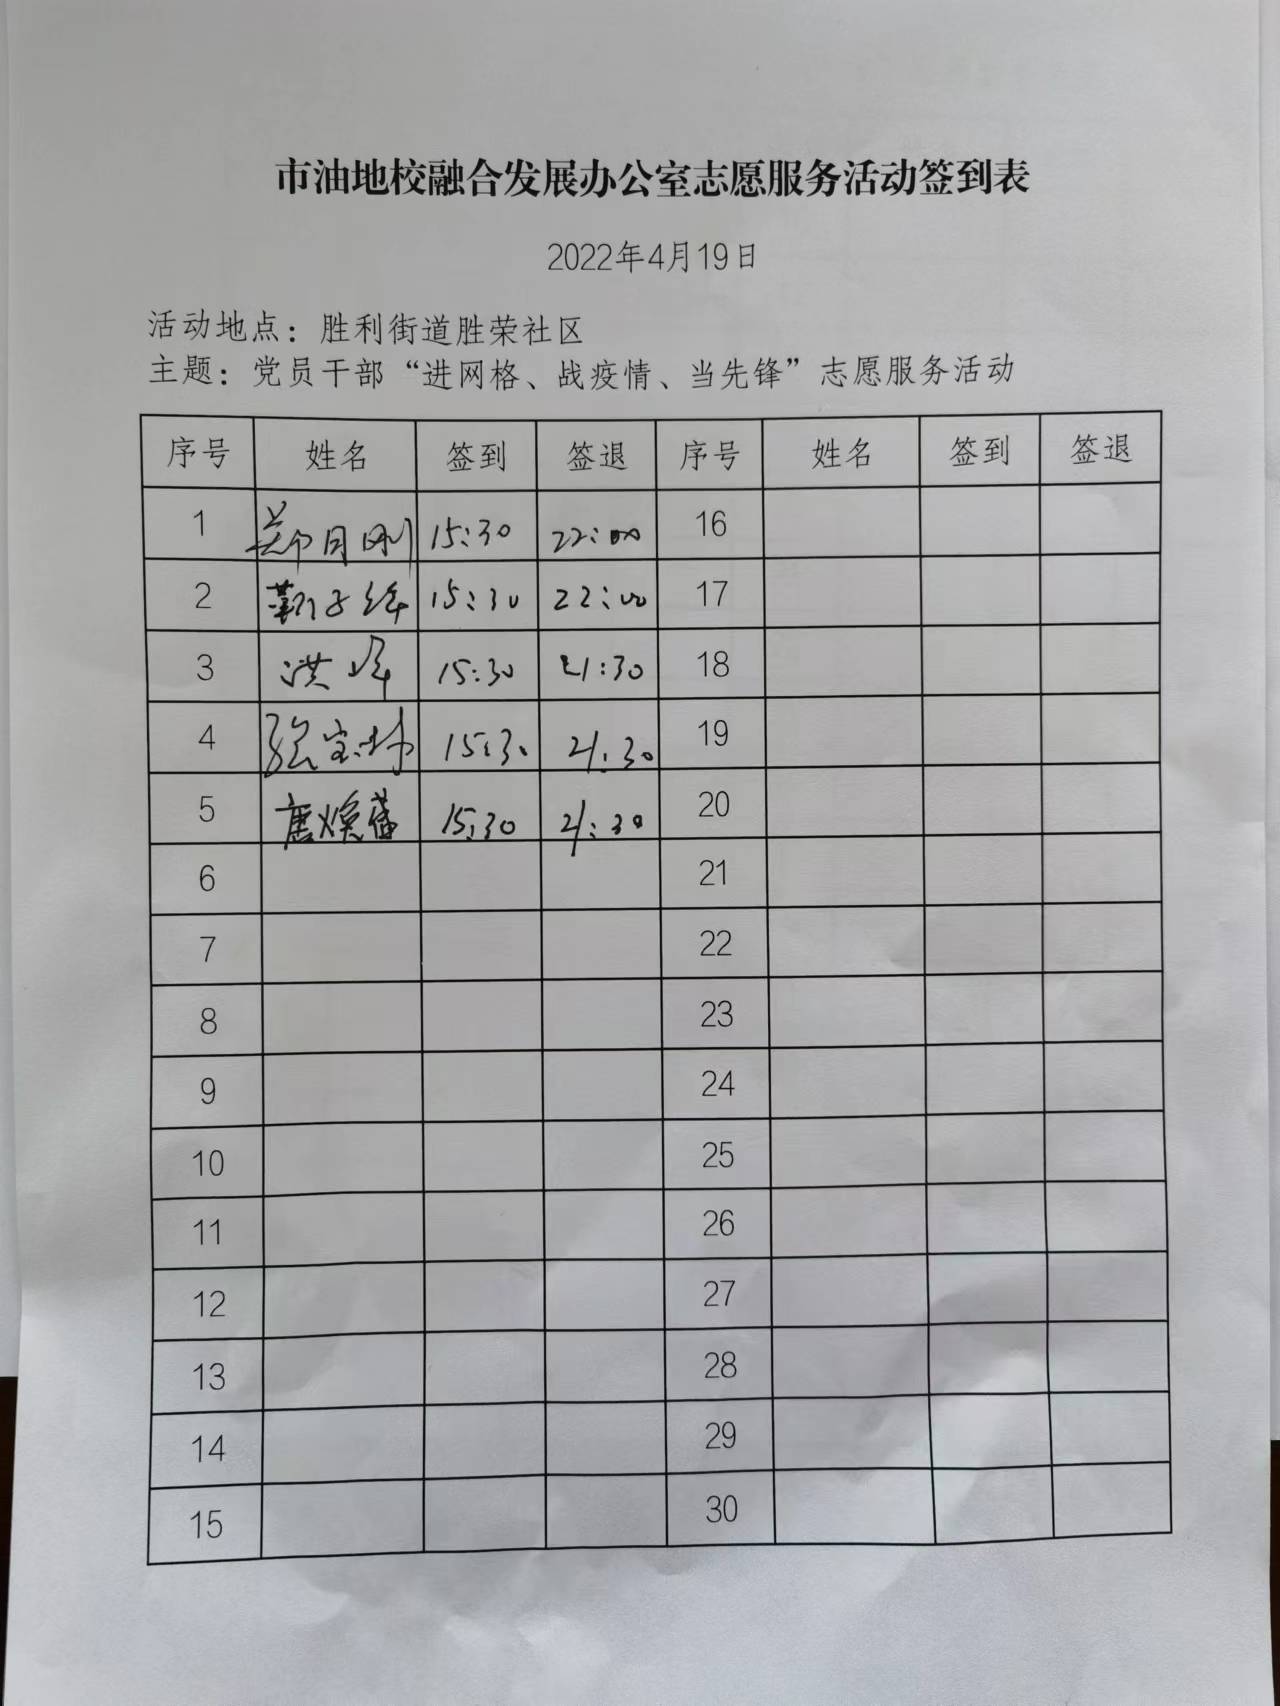 市油地校融合发展办公室志愿服务活动签到表
2022年4月19日
活动地点：胜利街道胜荣社区
主题：党员干部“进网格、战疫情、当先锋”志愿服务活动
序号 姓名 签到 签退 序号 姓名 签到 签退
1 郑月刚 15:30 22:00 16
2 15:30 22:00 17
3 洪峰 15:30 21:30 18
4 张宝林 15:30 21:30 19
5 唐焕蕾 15:30 21:30 20
6 21
7 22
8 23
9 24
10 25
11 26
12 27
13 28
14 29
15 30